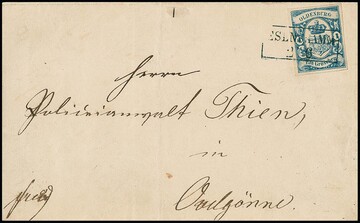 OLDENBURG
Herrn
Polizeianwalt Thien,
in
Ovelgönne.